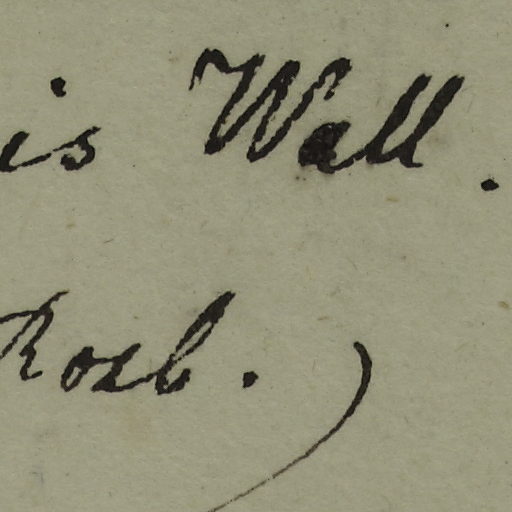 is Wall.
Roxb.)